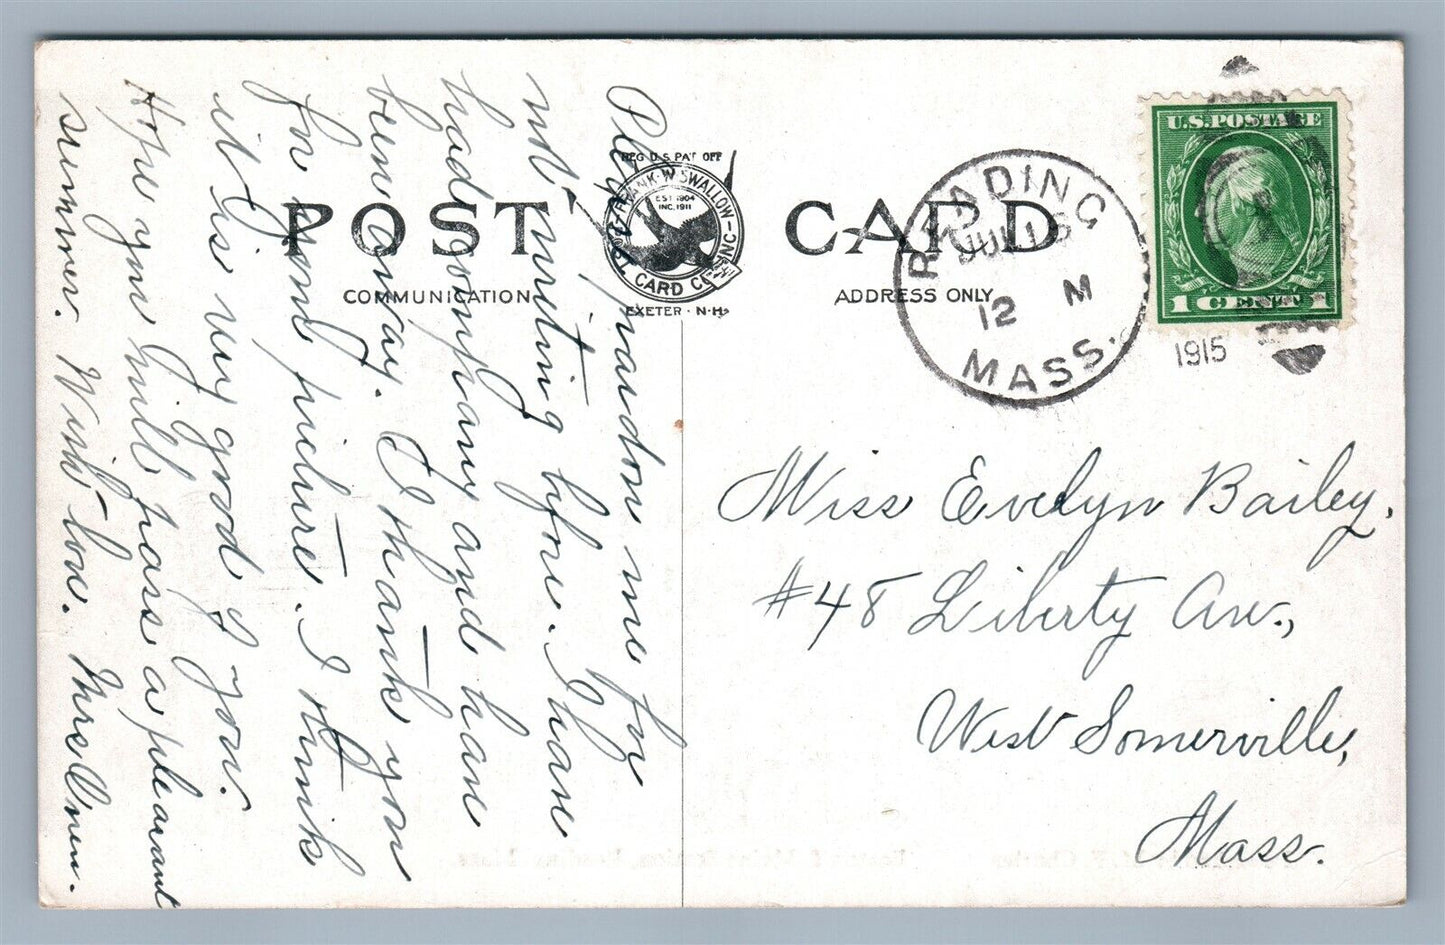 POST CARD
REG. U.S. PAT OFF
FRANK·W·SWALLOW
EST 1904
INC. 1911
POST CARD CO. INC.
EXETER · N·H·
COMMUNICATION
ADDRESS ONLY
READING
JUL
12 M
MASS.
1915
U.S. POSTAGE
1 CENT 1
Please pardon me for
not writing before. I have
had company and have
been away. I thank you
for your picture. I think
it is very good of you.
Hope you will pass a pleasant
summer. With love.
Miss Evelyn Bailey,
#48 Liberty Ave.,
West Somerville,
Mass.